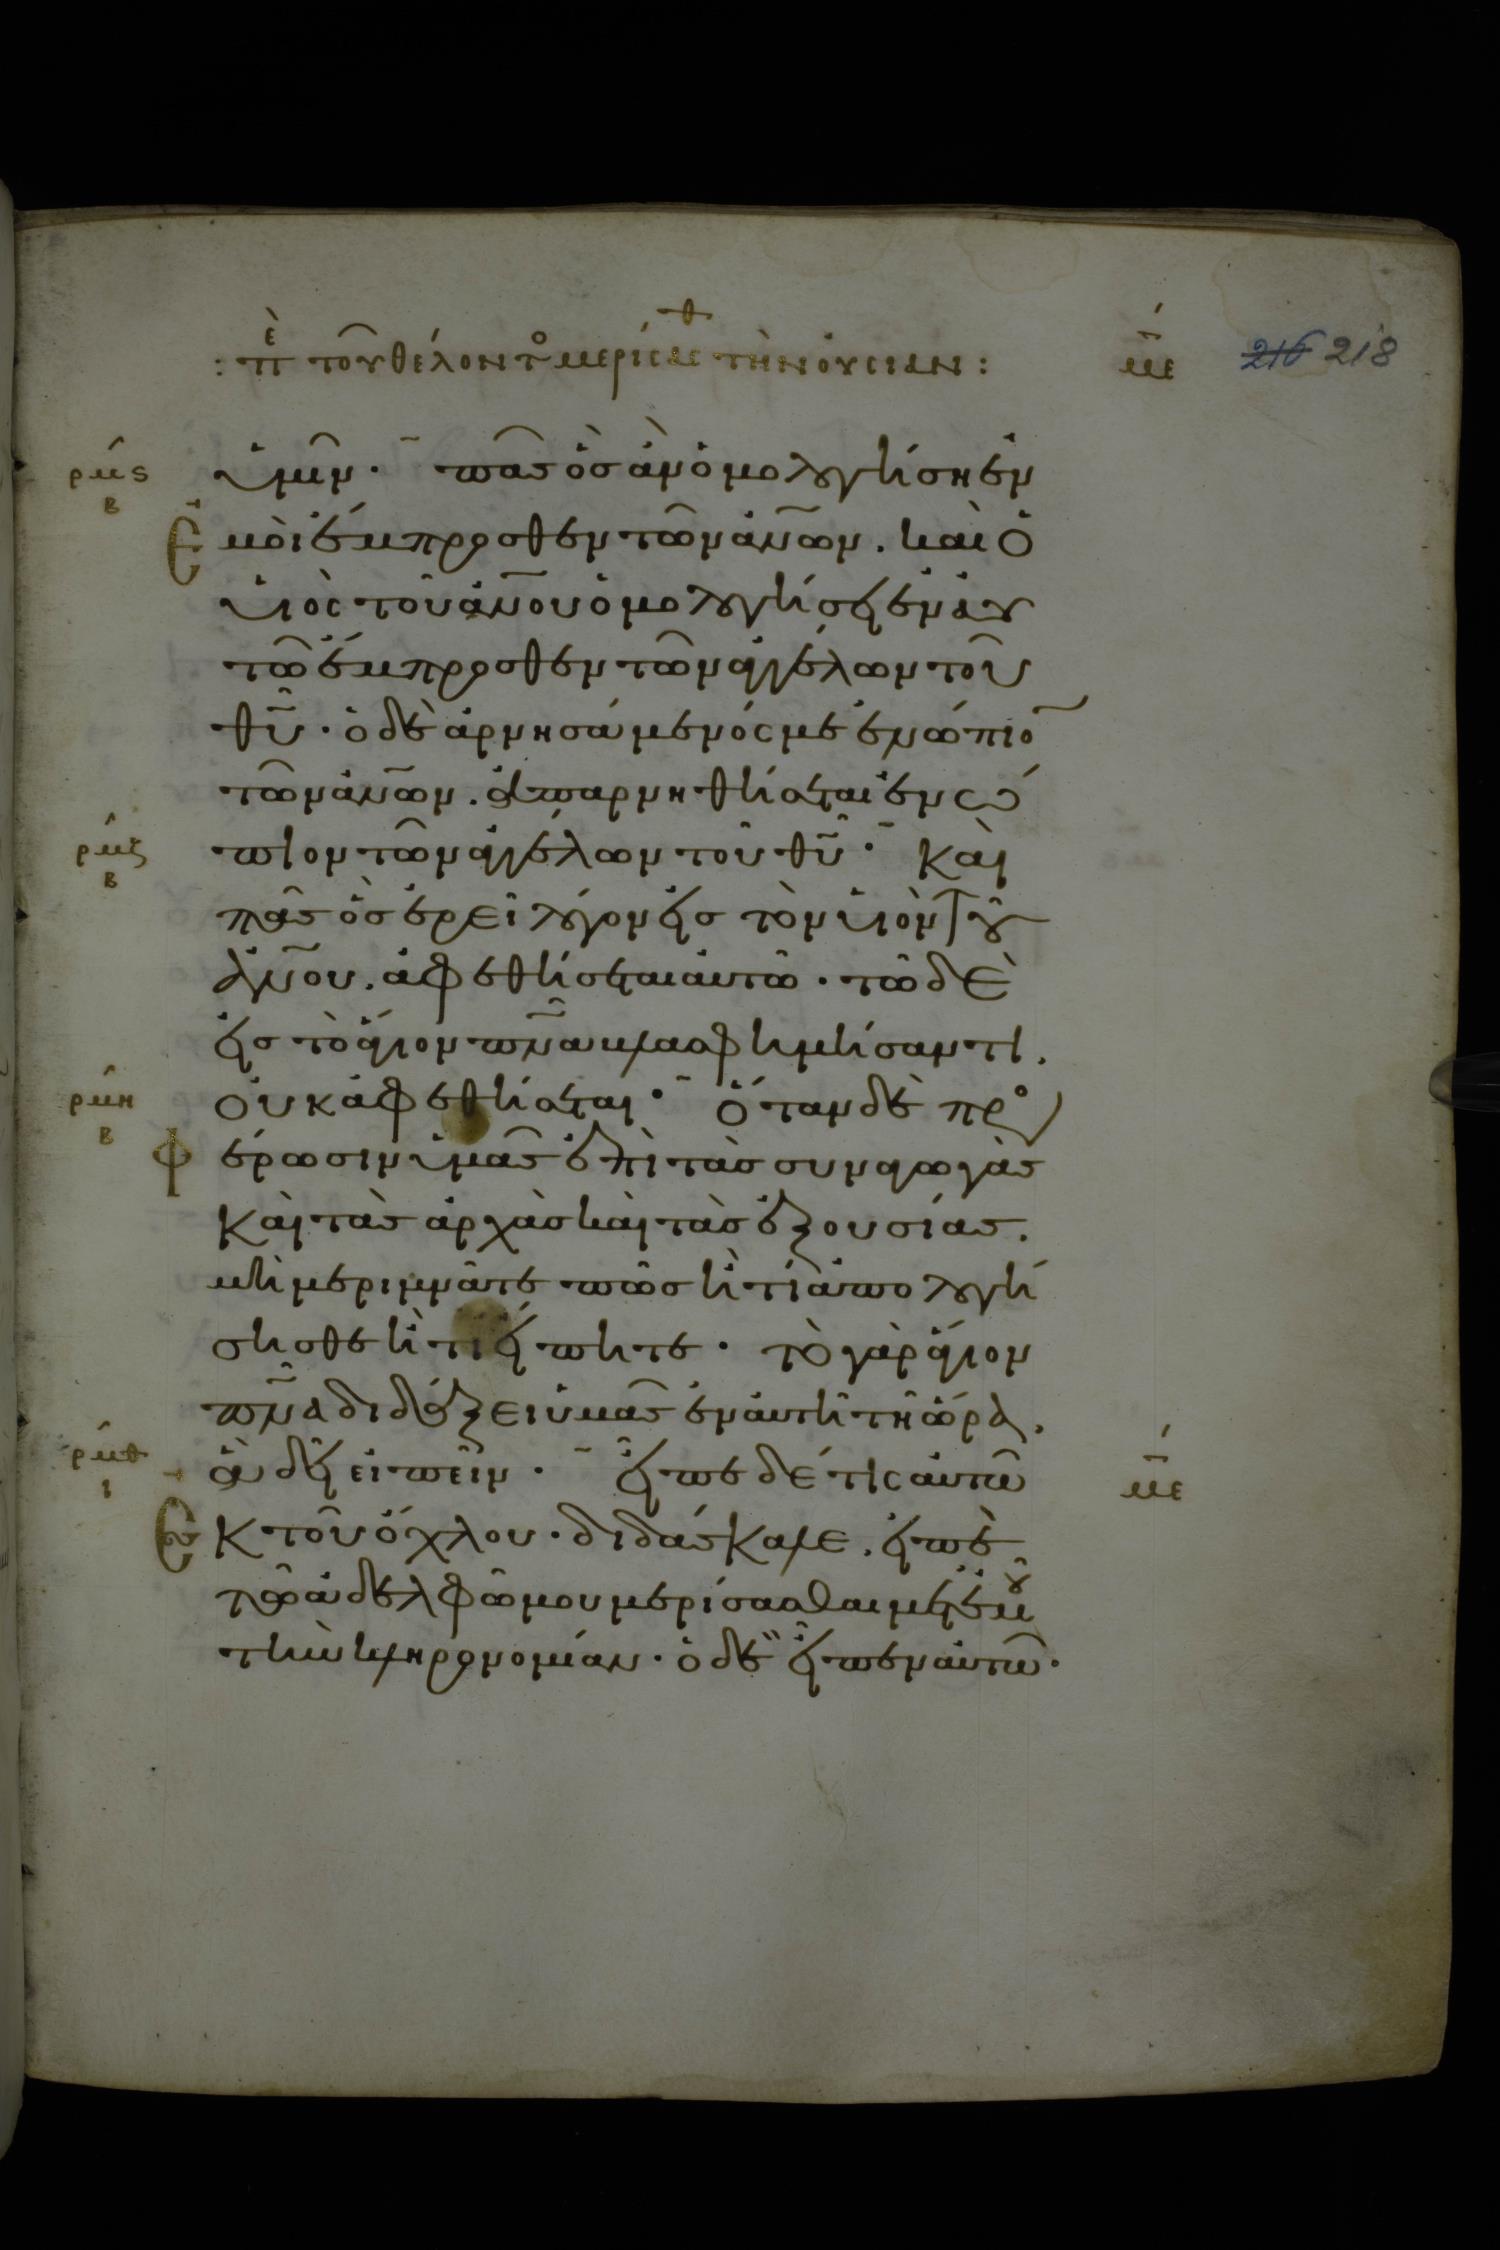 : πε τοῦ θέλοντο μερίσαι τὴν οὐσίαν : μ̅ε̅ 216 218
ρμς ὑμῖν · πᾶς ὃσ ἀν ὁμολογήσῃ ἐν
β
ἐμοὶ ἔμπροσθεν τῶν ἀν̅ω̅ν. καὶ ὁ
ὑιὸς τοῦ ἀν̅ου ὁμολογήσει ἐν αυ
τῶ ἔμπροσθεν τῶν ἀγγέλων τοῦ
θ̅υ̅ · ὁ δὲ ἀρνησάμενός με ἐνώπιο̅
τῶν ἀν̅ων. ἀπαρνηθήσεται ἐνώ
ρμζ πιον τῶν ἀγγέλων τοῦ θ̅υ̅ · Καὶ
β
πᾶς ὃσ ἐρεῖ λόγον εἰσ τὸν ὑιὸν τοῦ
ἀν̅ου. ἀφεθήσεται αὐτῶ · τῶ δὲ
εἰσ τὸ ἅγιον πν̅α βλασφημήσαντι.
ρμη οὐκ ἀφεθήσεται · ὅταν δὲ προ
β
φέρωσιν ὑμᾶς ἐπὶ τὰς συναγωγὰς
Καὶ τὰς ἀρχὰς καὶ τὰς ἐξουσίας.
μὴ μεριμνᾶτε πῶς ἢ τί ἀπολογή
σησθε ἢ τι εἴπητε · τὸ γὰρ ἅγιον
πν̅α διδάξει ὑμᾶς ἐν αὐτῆ τῆ ὥρα.
ρμθ ἃ δεῖ εἰπεῖν · εἶπε δέ τις αὐτῶ μ̅ε̅
ι
ἐκ τοῦ ὄχλου · διδάσκαλε. εἰπὲ
τῶ ἀδελφῶ μου μερίσασθαι μετ' ἐμοῦ
τὴν κληρονομίαν · ὁ δὲ εἶπεν αὐτῶ ·